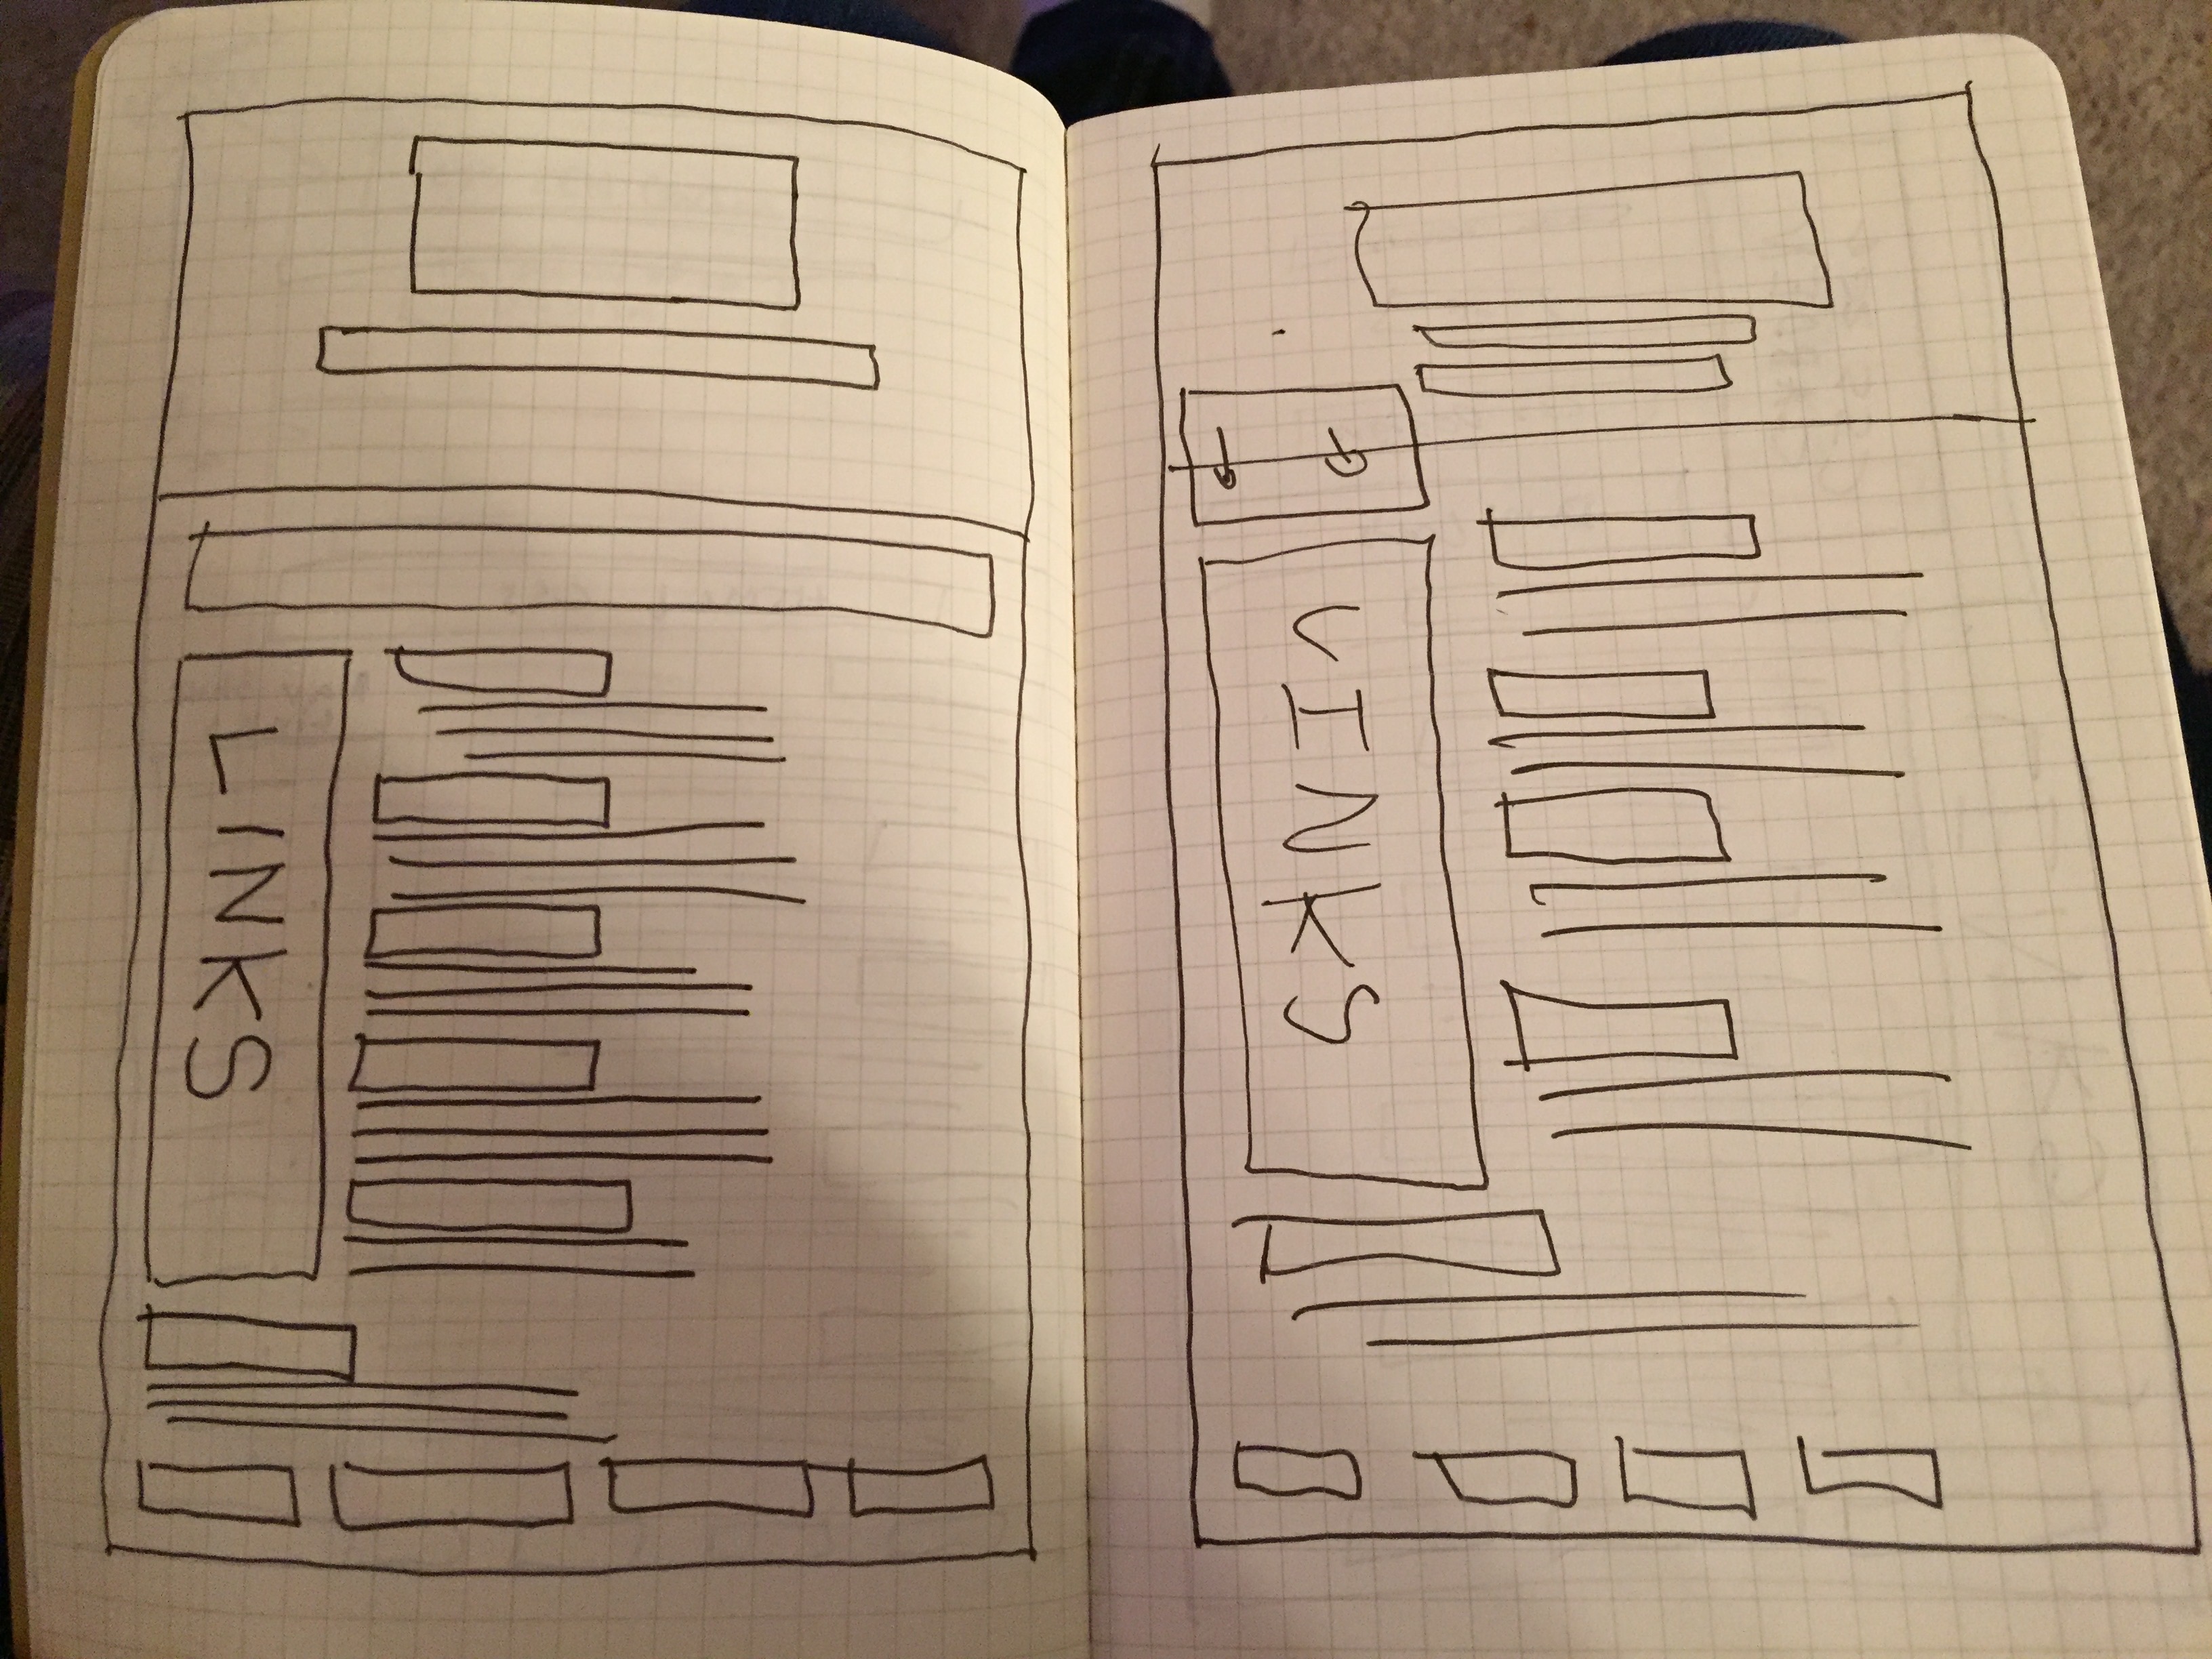 LINKS
LINKS